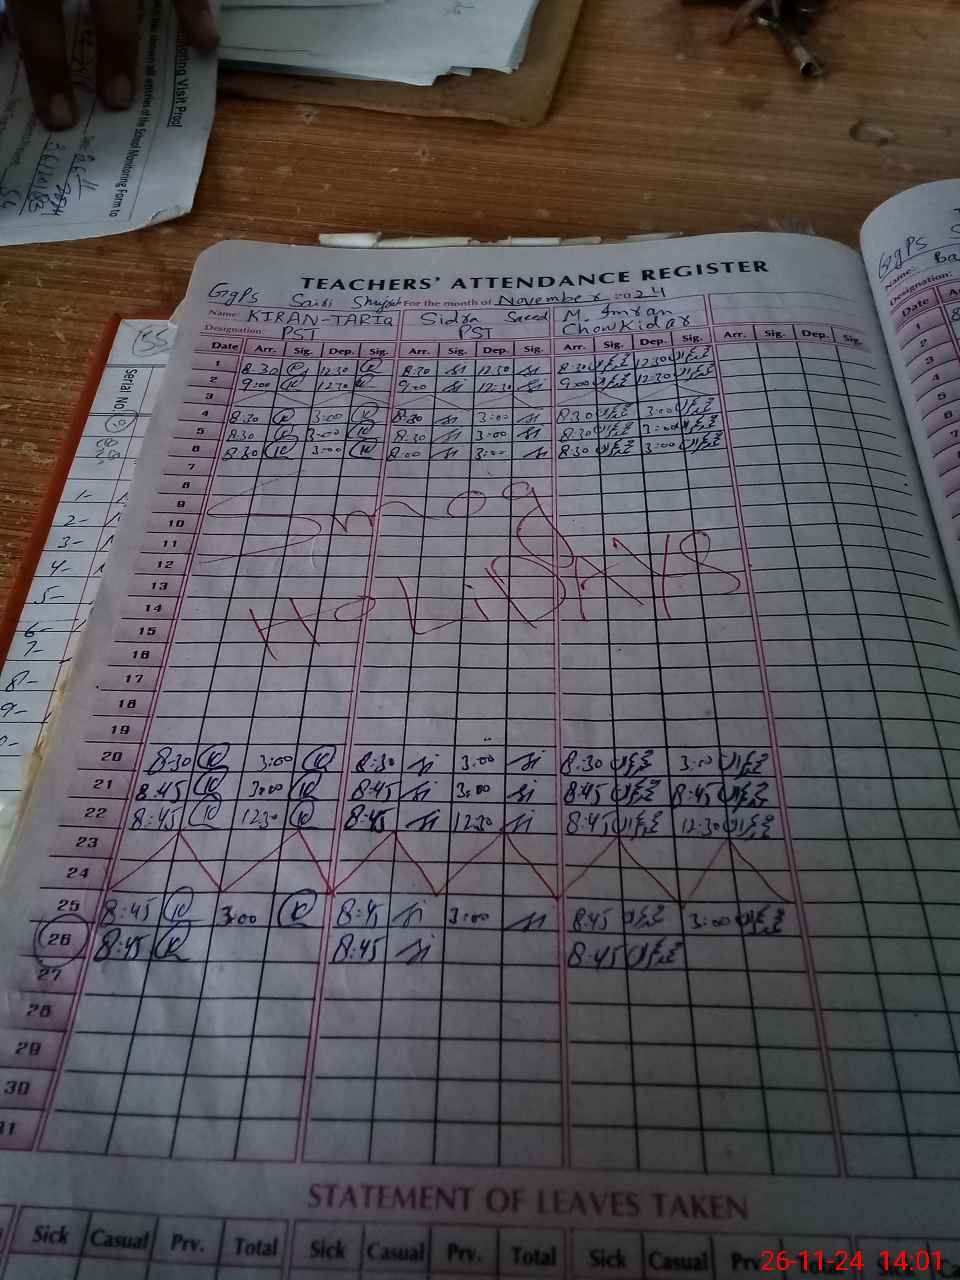 Monitoring Visit Proof
TEACHERS' ATTENDANCE REGISTER
GgPS
For the month of November 2024
Name: KIRAN-TARIQ Sidra Saeed M. Imran
Designation: PST PST Chowkidar
Date Arr. Sig. Dep. Sig. Arr. Sig. Dep. Sig. Arr. Sig. Dep. Sig. Arr. Sig. Dep. Sig.
1 8:30 12:30 8:30 12:30 8:30 12:30
2 9:00 12:30 9:00 12:30 9:00 12:30
3
4 8:30 3:00 8:30 3:00 8:30 3:00
5 8:30 3:00 8:30 3:00 8:30 3:00
6 8:30 3:00 8:00 3:00 8:30 3:00
7
8
9 Smog
10
11
12
13 HOLIDAYS
14
15
16
17
18
19
20 8:30 3:00 8:30 3:00 8:30 3:00
21 8:45 3:00 8:45 3:00 8:45 8:45
22 8:45 12:30 8:45 12:30 8:45 12:30
23
24
25 8:45 3:00 8:45 3:00 8:45 3:00
26 8:45 8:45 8:45
27
28
29
30
31
STATEMENT OF LEAVES TAKEN
Sick Casual Prv. Total Sick Casual Prv. Total Sick Casual Prv.
26-11-24 14:01
Serial No
1-
2-
3-
4-
5-
6-
7-
8-
9-
GgPS
Name:
Designation:
Date
1
2
3
4
5
6
7